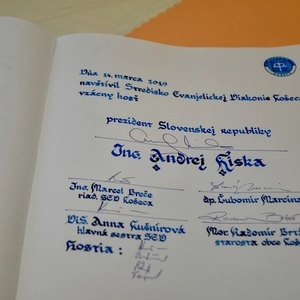 Dňa 14. marca 2019
navštívil Stredisko Evanjelickej Diakonie Košeca
vzácny hosť
prezident Slovenskej republiky
Ing. Andrej Kiska
Ing. Marcel Breče
riad. SED Košeca
dp. Ľubomír Marcina
VŠ. Anna Kušnírová
hlavná sestra SED
Mgr. Radomír
starosta obce
Hostia: